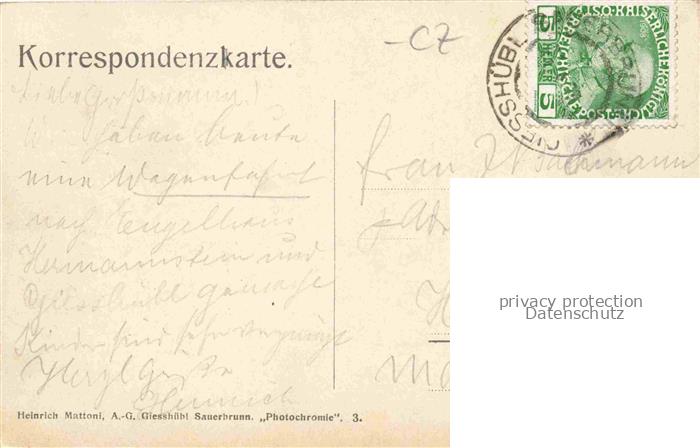 -CZ
Korrespondenzkarte.
KAISERLICHE KÖNIGL
ÖSTERREICHISCHE POST
5 HELLER 5
GIESSHÜBL SAUERBRUNN *
Liebe Grossmama!
Wir haben heute
eine Wagenfahrt
nach Engelhaus
Hermannstein und
Giesshübl gemacht
Kinder sind sehr vergnügt
Herzl Grüße
Heinrich
Frau
privacy protection
Datenschutz
Heinrich Mattoni, A.-G. Giesshübl Sauerbrunn. „Photochromie". 3.